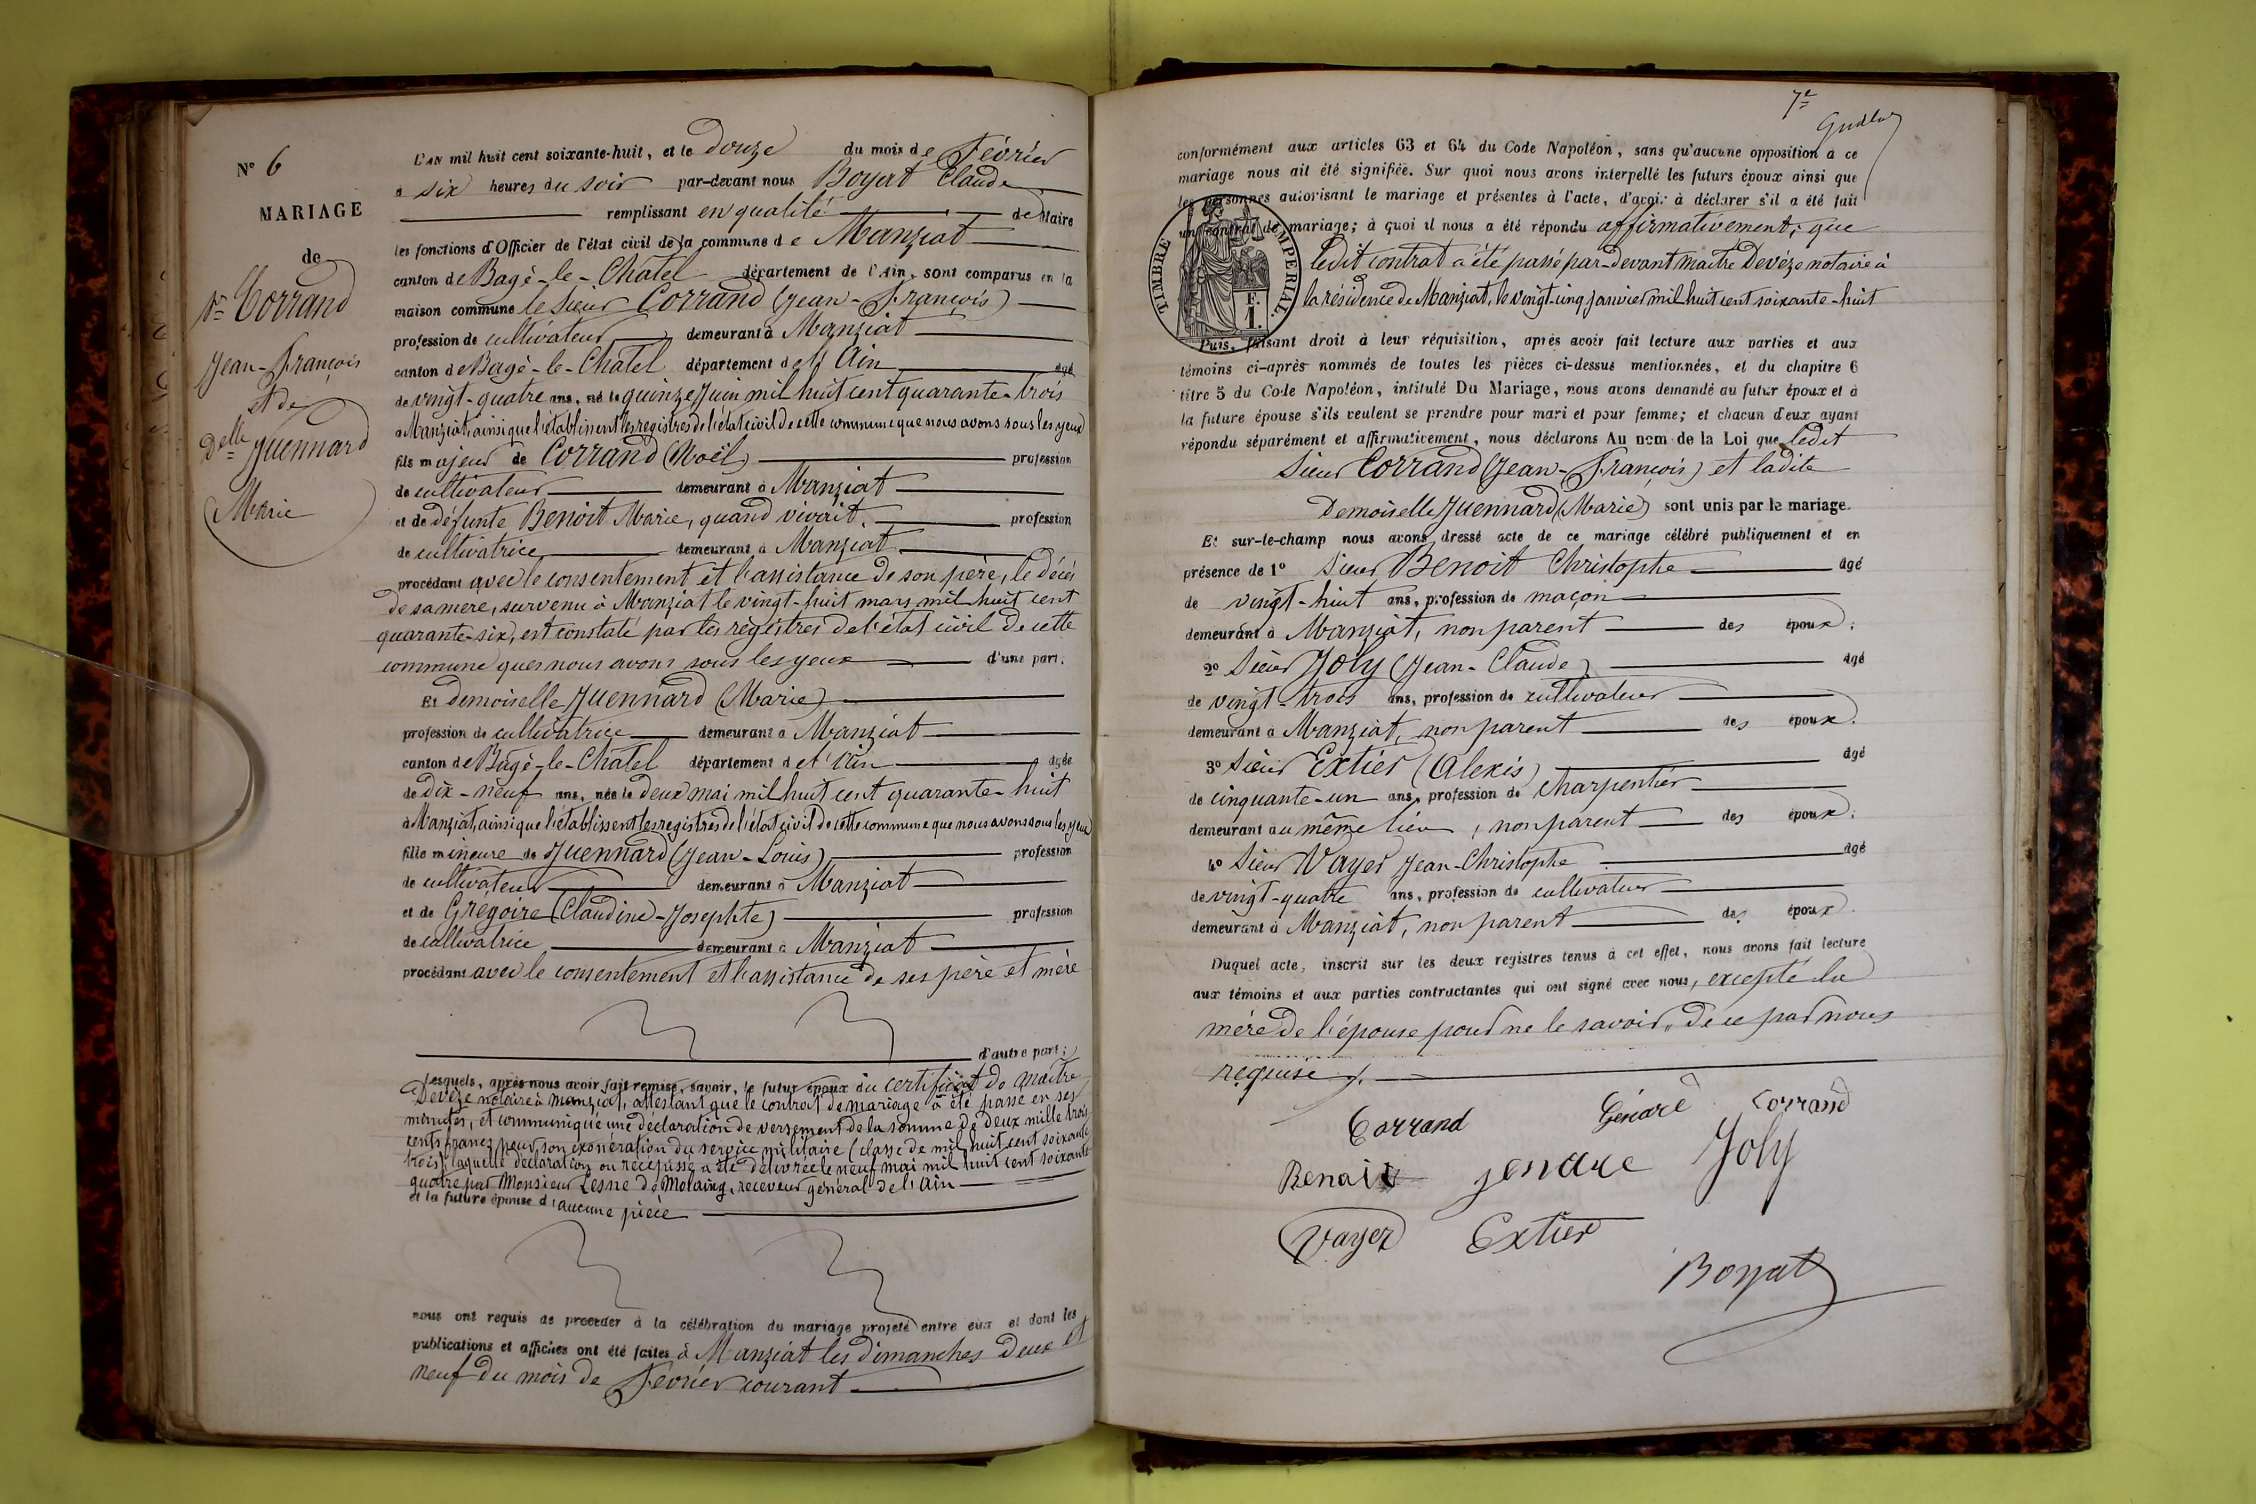 N° 6
MARIAGE
de
Sr Corrand
Jean-François
et de
Delle Juennard
Marie
L'AN mil huit cent soixante-huit, et le douze du mois de Février
à six heures du soir par-devant nous Boyat Claude
remplissant en qualité de Maire
les fonctions d'Officier de l'état civil de la commune de Manziat
canton de Bagé-le-Châtel département de l'Ain, sont comparus en la
maison commune le sieur Corrand (Jean-François)
profession de cultivateur demeurant à Manziat
canton de Bagé-le-Châtel département de l'Ain âgé
de vingt-quatre ans, né le quinze Juin mil huit cent quarante-trois
à Manziat, ainsi que l'établissent les registres de l'état civil de cette commune que nous avons sous les yeux
fils majeur de Corrand (Noël) profession
de cultivateur demeurant à Manziat
et de défunte Benoit Marie, quand vivait, profession
de cultivatrice demeurant à Manziat
procédant avec le consentement et l'assistance de son père, le décès
de sa mère, survenu à Manziat le vingt-huit mars mil huit cent
quarante-six, est constaté par les registres de l'état civil de cette
commune que nous avons sous les yeux d'une part.
Et demoiselle Juennard (Marie)
profession de cultivatrice demeurant à Manziat
canton de Bâgé-le-Châtel département de l'Ain âgée
de dix-neuf ans, née le deux mai mil huit cent quarante-huit
à Manziat, ainsi que l'établissent les registres de l'état civil de cette commune que nous avons sous les yeux
fille mineure de Juennard (Jean-Louis) profession
de cultivateur demeurant à Manziat
et de Grégoire (Claudine-Josephte) profession
de cultivatrice demeurant à Manziat
procédant avec le consentement et l'assistance de ses père et mère
d'autre part;
Lesquels, après nous avoir fait remise, savoir, le futur époux du certificat de Maître
Devèze notaire à Manziat, attestant que le contrat de mariage a été passé en ses
minutes, et communiqué une déclaration de versement de la somme de deux mille trois
cents francs pour son exonération du service militaire (classe de mil huit cent soixante
trois), laquelle déclaration ou récépissé a été délivrée le neuf mai mil huit cent soixante
quatre par Monsieur Lesne de Molaing, receveur général de l'Ain
et la future épouse d'aucune pièce
nous ont requis de procéder à la célébration du mariage projeté entre eux et dont les
publications et affiches ont été faites à Manziat les dimanches deux et
neuf du mois de Février courant
7e
conformément aux articles 63 et 64 du Code Napoléon, sans qu'aucune opposition à ce
mariage nous ait été signifiée. Sur quoi nous avons interpellé les futurs époux ainsi que
les personnes autorisant le mariage et présentes à l'acte, d'avoir à déclarer s'il a été fait
un contrat de mariage; à quoi il nous a été répondu affirmativement; que
TIMBRE IMPERIAL.
F.
1.
ledit contrat a été passé par-devant maître Devèze notaire à
la résidence de Manziat, le vingt-cinq janvier mil huit cent soixante-huit
Puis, faisant droit à leur réquisition, après avoir fait lecture aux parties et aux
témoins ci-après nommés de toutes les pièces ci-dessus mentionnées, et du chapitre 6
titre 5 du Code Napoléon, intitulé Du Mariage, nous avons demandé au futur époux et à
la future épouse s'ils veulent se prendre pour mari et pour femme; et chacun d'eux ayant
répondu séparément et affirmativement, nous déclarons Au nom de la Loi que ledit
Sieur Corrand (Jean-François) et ladite
Demoiselle Juennard (Marie) sont unis par le mariage.
Et sur-le-champ nous avons dressé acte de ce mariage célébré publiquement et en
présence de 1° Sieur Benoit Christophe âgé
de vingt-huit ans, profession de maçon
demeurant à Manziat, non parent des époux;
2° Sieur Joly (Jean-Claude) âgé
de vingt-trois ans, profession de cultivateur
demeurant à Manziat, non parent des époux;
3° Sieur Extier (Alexis) âgé
de cinquante-un ans, profession de Charpentier
demeurant au même lieu, non parent des époux;
4° Sieur Vayer Jean-Christophe âgé
de vingt-quatre ans, profession de cultivateur
demeurant à Manziat, non parent des époux.
Duquel acte, inscrit sur les deux registres tenus à cet effet, nous avons fait lecture
aux témoins et aux parties contractantes qui ont signé avec nous, excepté la
mère de l'épouse pour ne le savoir, de ce par nous
requise
Corrand Corrand
Benoit Joly
Vayer Extier
Boyat